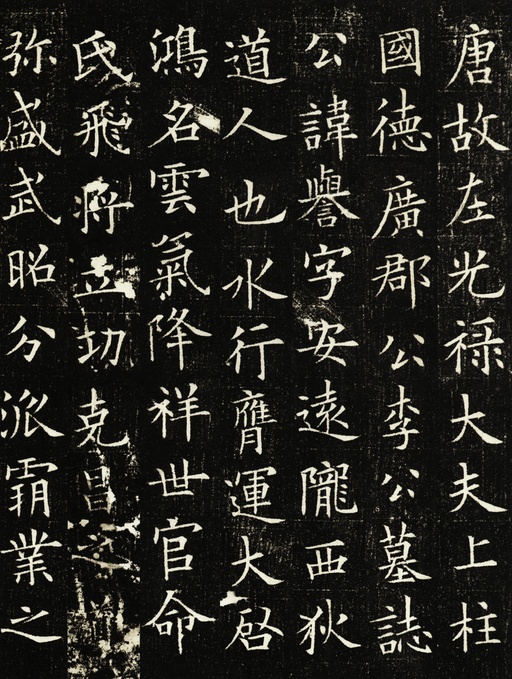 唐故左光祿大夫上柱
國德廣郡公李公墓誌
公諱譽字安遠隴西狄
道人也水行膺運大啓
鴻名雲氣降祥世官命
氏飛將立功克昌
弥盛武昭分派霸業之